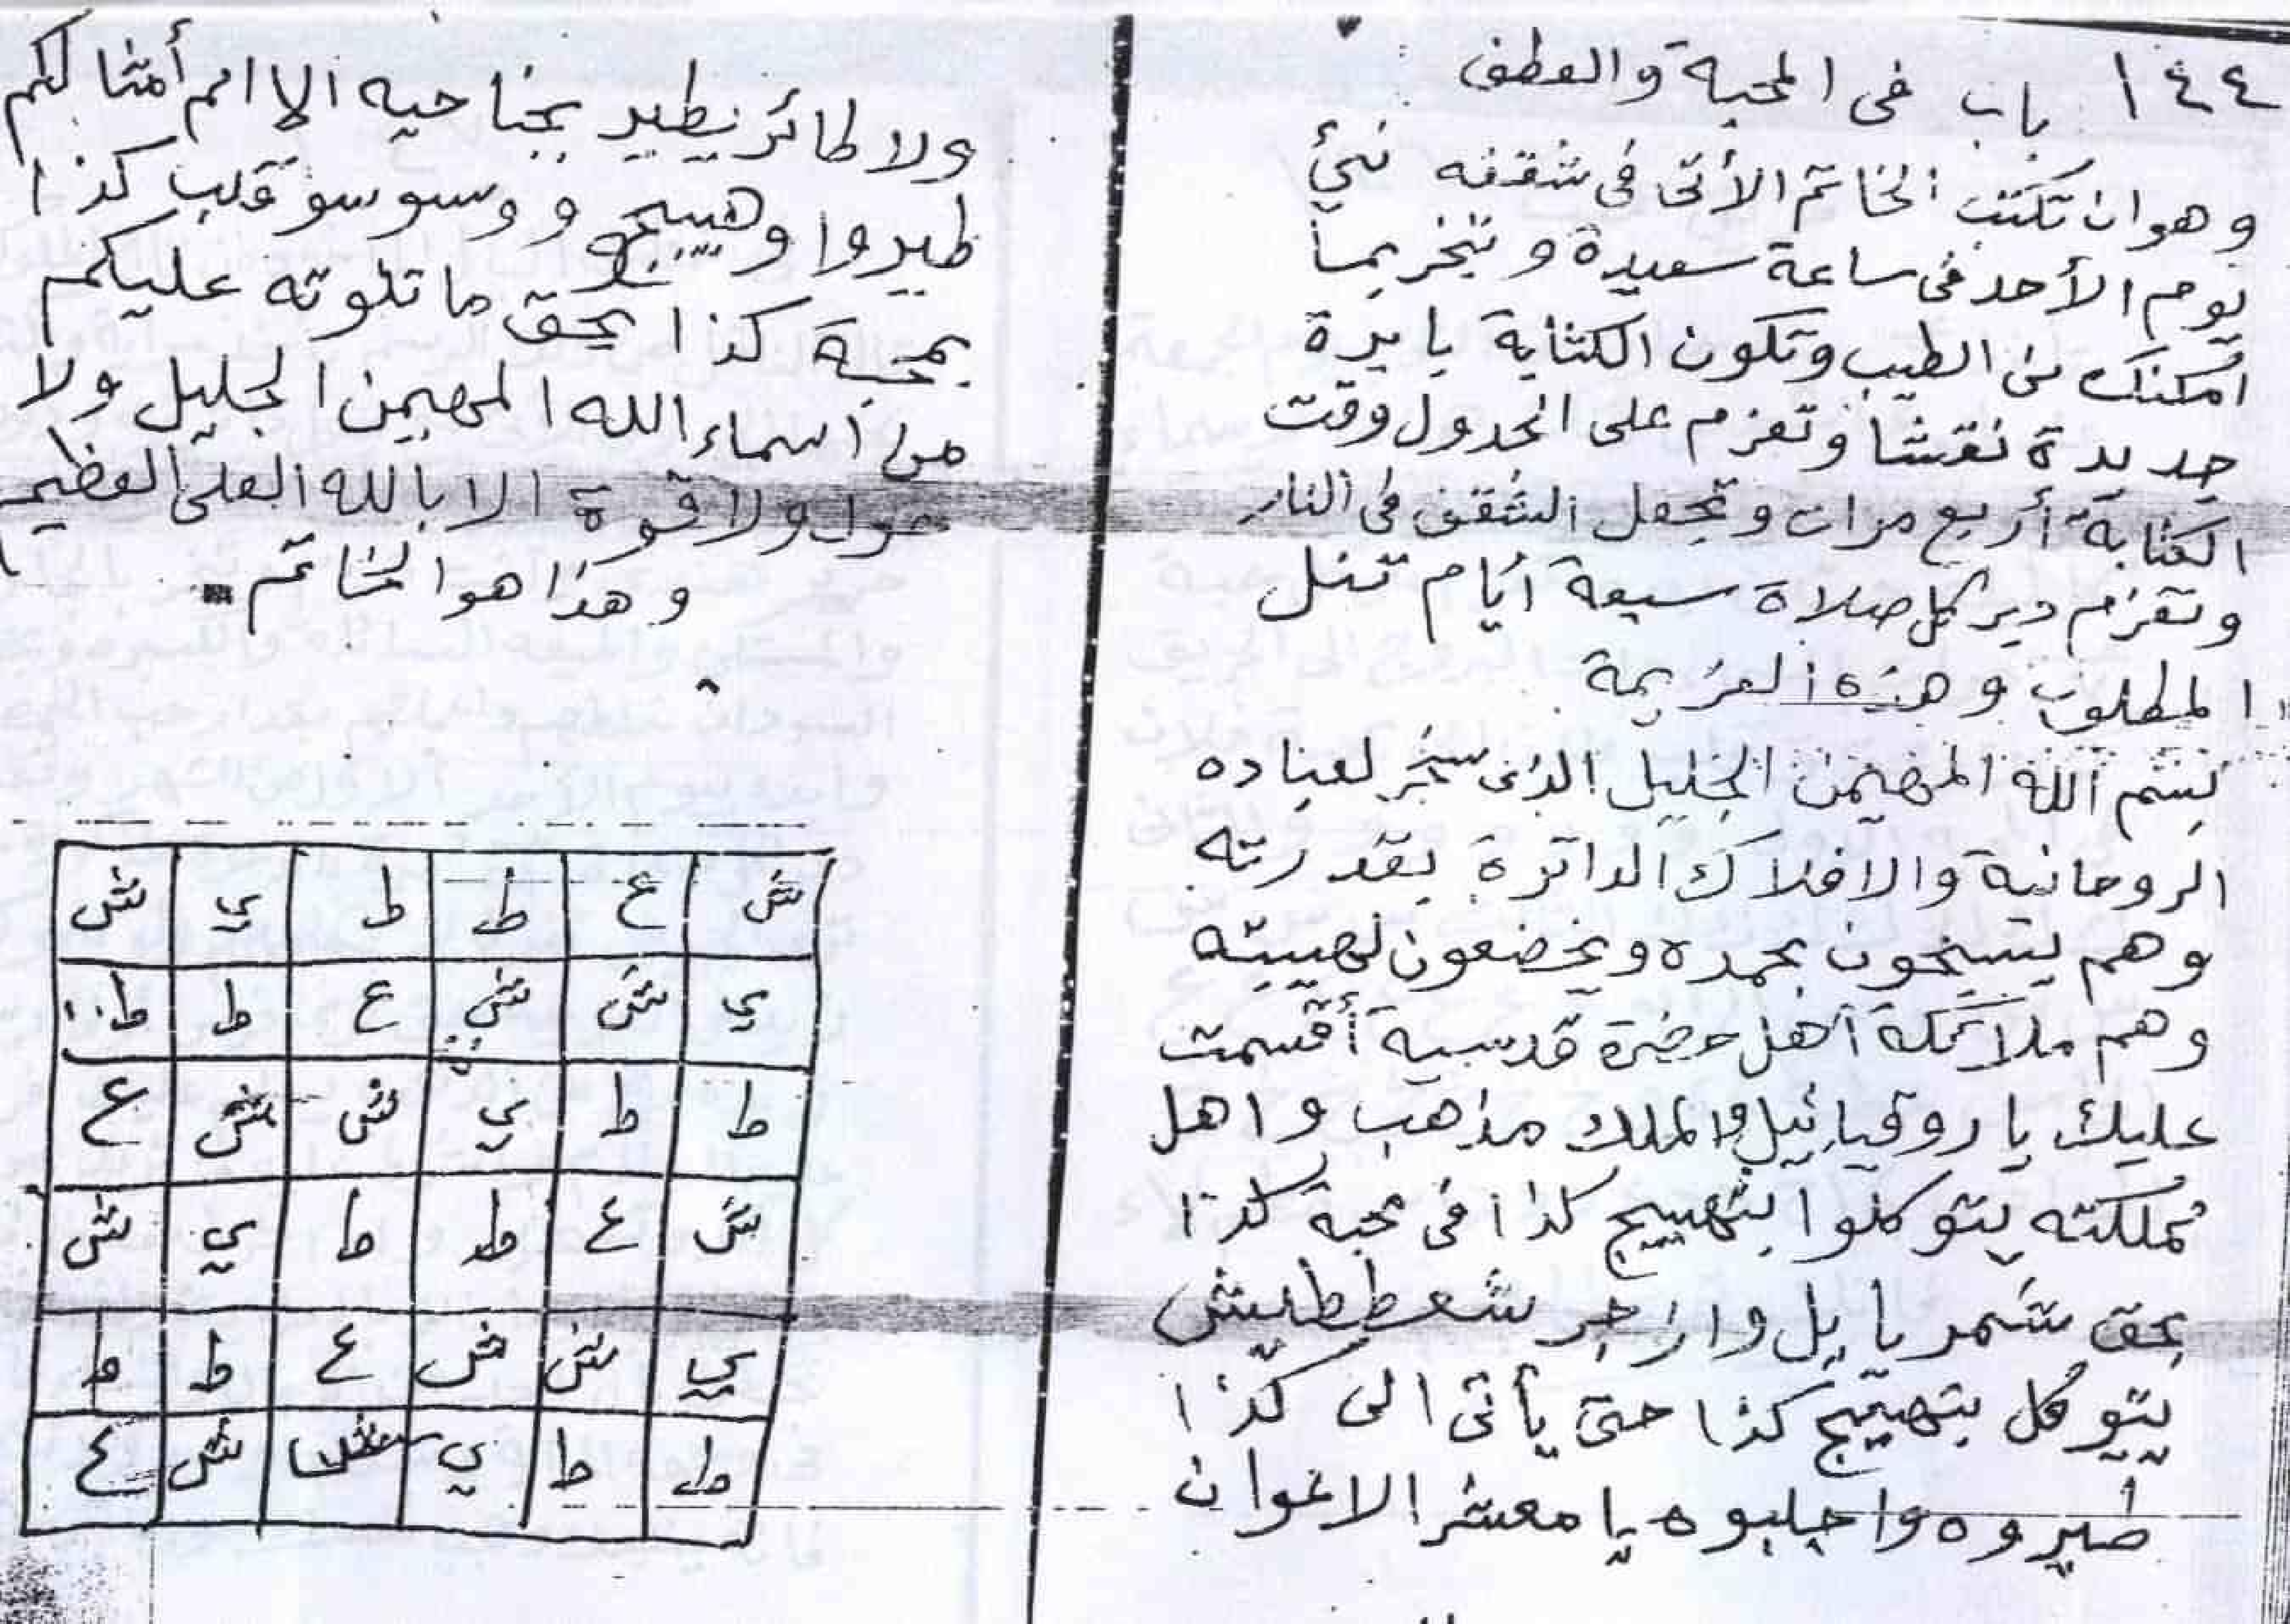 ١٤٤ باب فى المحبة والعطف
وهو ان تكتب الخاتم الأتى فى شقفه نيئ
يوم الأحد فى ساعة سعيدة وتبخر بما
امكنك من الطيب وتكون الكتابة بابرة
جديدة نقشا وتعزم على الجدول وقت
الكتابة أربع مرات وتجعل الشقف فى النار
وتعزم دبر كل صلاة سبعة ايام تنل
المطلوب وهذه العزيمة
بسم الله المهيمن الجليل الذى سخر لعباده
الروحانية والافلاك الدائرة بقدرته
وهم يسبحون بحمده ويخضعون لهيبته
وهم ملائكة أهل حضرة قدسية أقسمت
عليك يا روقيائيل والملك مذهب واهل
مملكته يتوكلوا بتهييج كذا فى محبة كذا
بحق شمر يايل وازجر شعططيش
يتوكل بتهييج كذا حتى يأتى الى كذا
طيروه واجلبوه يا معشر الاعوان
ولا طائر يطير بجناحيه الا امم أمثالكم
طيروا وهيجو ووسوسو قلب كذا
بمحبة كذا بحق ما تلوته عليكم
من اسماء الله المهيمن الجليل ولا
حول ولا قوة الا بالله العلى العظيم
وهذا هو الخاتم
ش ع ط ط ي ش
ي ش ش ع ط ط
ط ط ي ش ش ع
ش ع ط ط ي ش
ي ش ش ع ط ط
ط ط ي ش ش ع